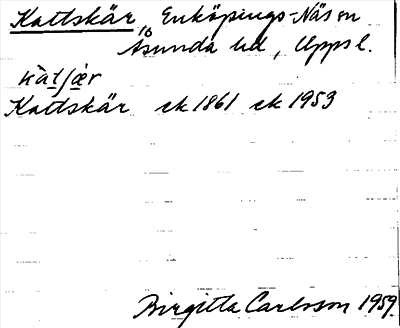 Kattskär, Enköpings-Näs sn
Åsunda hd, Upps l.
kàtʃæ̀r
Kattskär ek 1861 ek 1953
Birgitta Carlsson 1959.